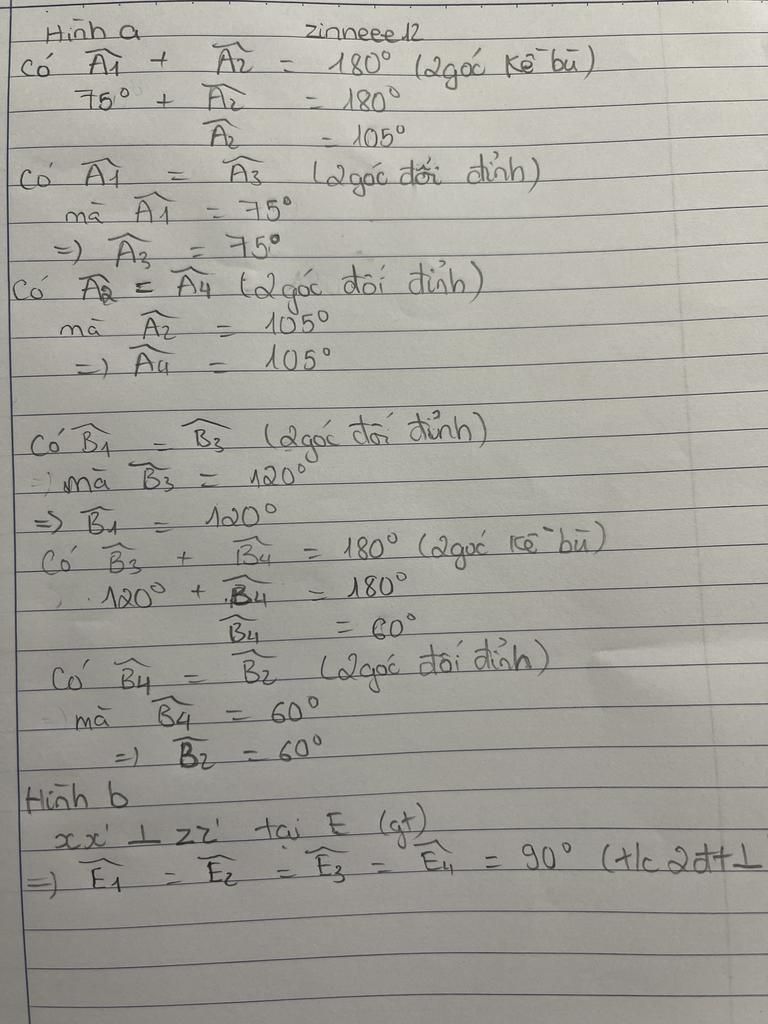 Hình a zinneee12
Có Â1 + Â2 = 180° (2góc kề bù)
75° + Â2 = 180°
Â2 = 105°
Có Â1 = Â3 (2góc đối đỉnh)
mà Â1 = 75°
=) Â3 = 75°
Có Â2 = Â4 (2góc đối đỉnh)
mà Â2 = 105°
=) Â4 = 105°
Có B̂1 = B̂3 (2góc đối đỉnh)
mà B̂3 = 120°
=> B̂1 = 120°
Có B̂3 + B̂4 = 180° (2góc kề bù)
120° + B̂4 = 180°
B̂4 = 60°
Có B̂4 = B̂2 (2góc đối đỉnh)
mà B̂4 = 60°
=) B̂2 = 60°
Hình b
xx' ⊥ zz' tại E (gt)
=) Ê1 = Ê2 = Ê3 = Ê4 = 90° (t/c 2đt ⊥